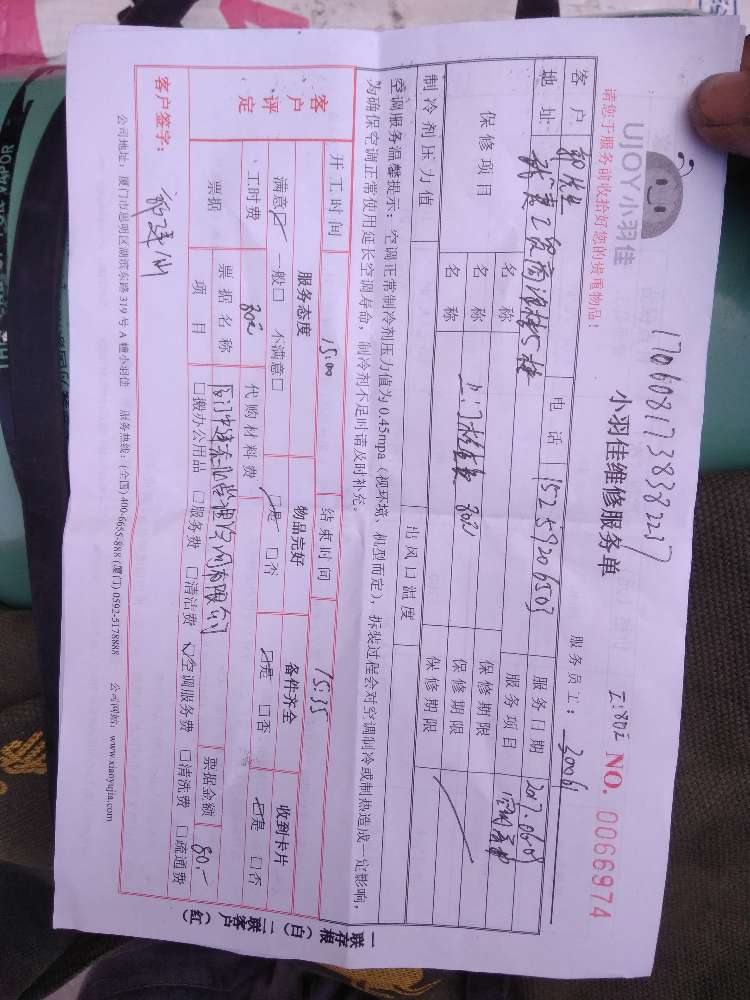 1706081738382237
UJOY小羽佳
小羽佳维修服务单
工:80元 NO. 0066974
请您于服务前收拾好您的贵重物品!
服务员工: 3006
客户 郭先生 电话 15259206503 服务日期 2017.06.08
地址 服务项目
保修项目 名称 保修期限
名称 上门检查费 80元 保修期限
名称 保修期限
制冷剂压力值 出风口温度
空调服务温馨提示:空调正常制冷剂压力值为0.45mpa(视环境、机型而定),拆装过程会对空调制冷或制热造成一定影响,
为确保空调正常使用延长空调寿命,制冷剂不足时请及时补充。
开工时间 15:00 结束时间 15:35
客户评定 服务态度 物品完好 备件齐全 收到卡片
满意☑ 一般□ 不满意□ ☑是 □否 ☑是 □否 ☑是 □否
工时费 80元 代购材料费
票据 票据名称 票据金额 80.-
项目 □搬办公用品 □服务费 □清洁费 ☑空调服务费 □清洗费 □疏通费
客户签字:
公司地址:厦门市思明区湖滨东路319号A幢小羽佳 服务热线:(全国)400-6655-888 (厦门) 0592-5178888 公司网站:www.xiaoyujia.com
一联存根(白) 二联客户(红)